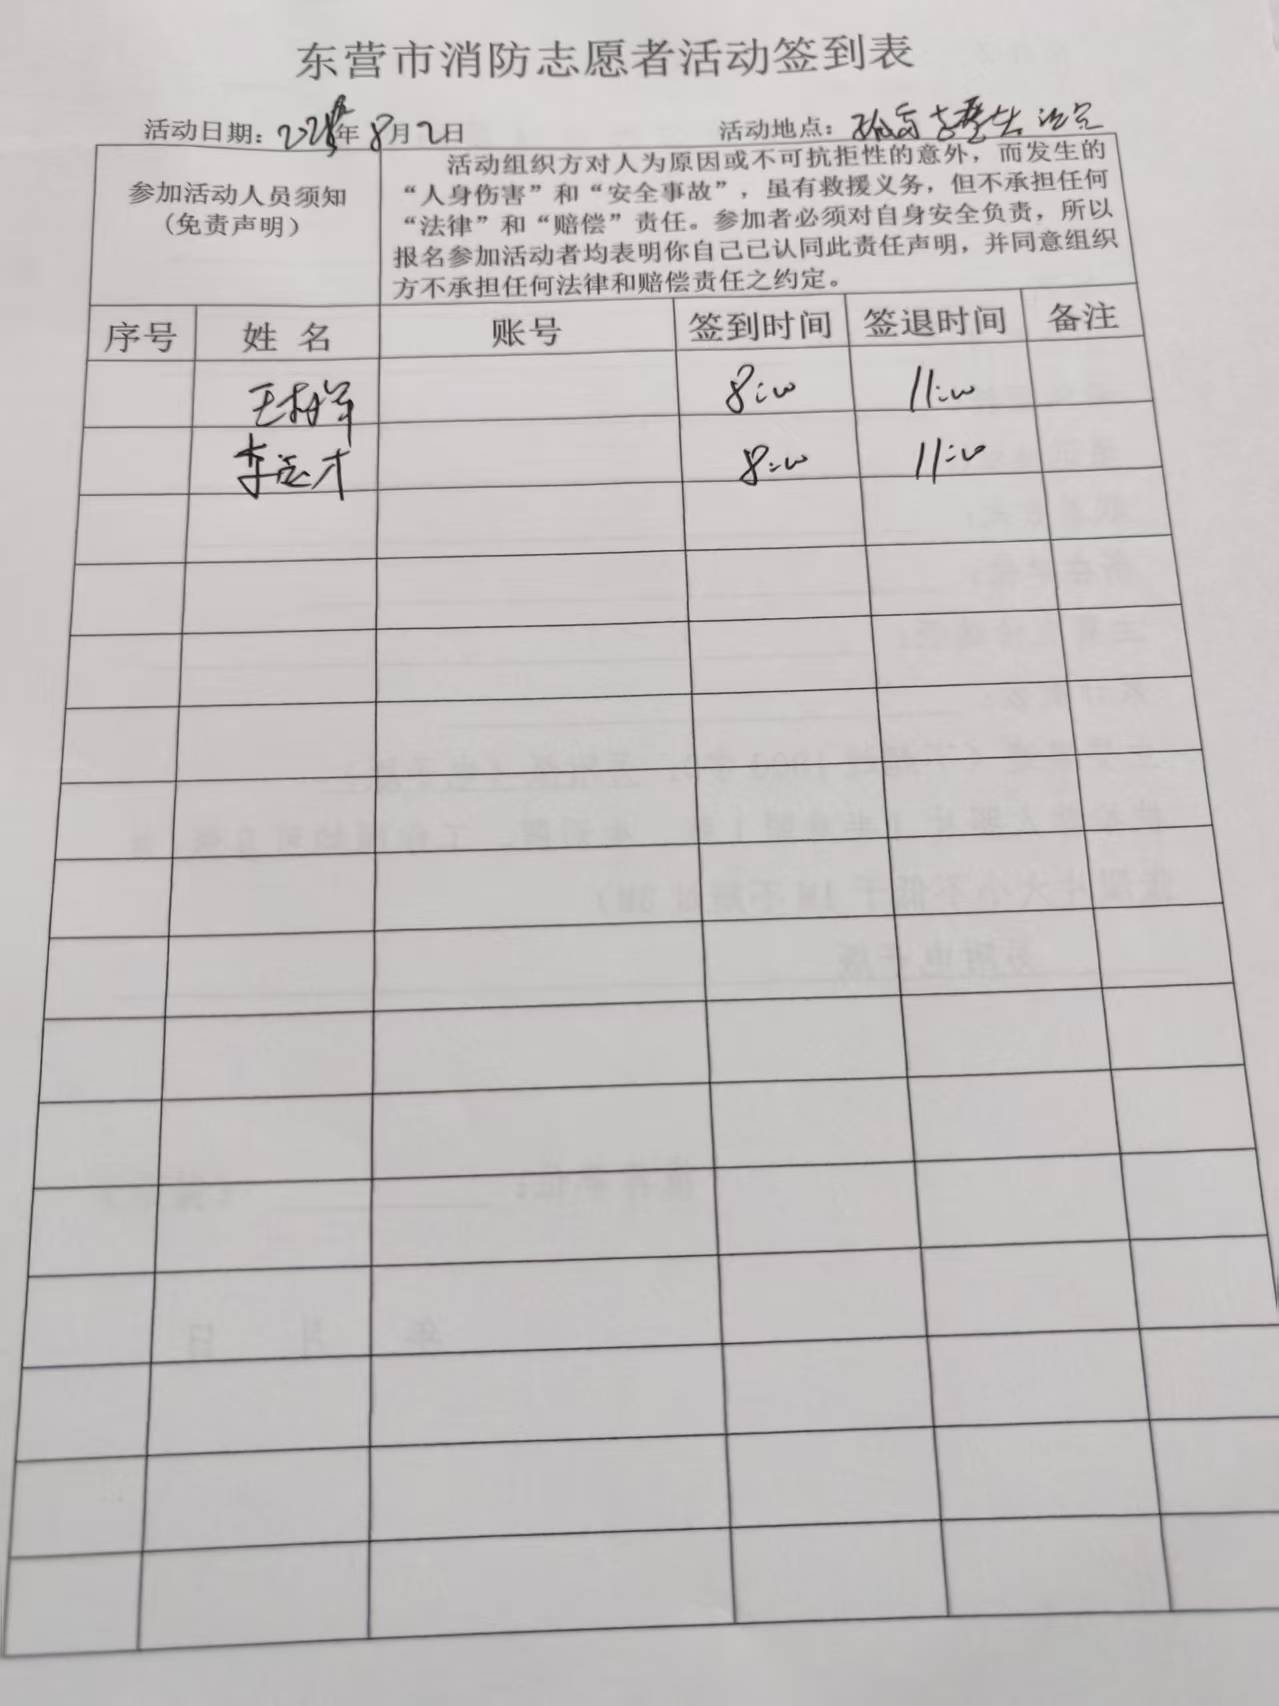 东营市消防志愿者活动签到表
活动日期: 202 年8月2日 活动地点:
参加活动人员须知
(免责声明)
活动组织方对人为原因或不可抗拒性的意外，而发生的
“人身伤害”和“安全事故”，虽有救援义务，但不承担任何
“法律”和“赔偿”责任。参加者必须对自身安全负责，所以
报名参加活动者均表明你自己已认同此责任声明，并同意组织
方不承担任何法律和赔偿责任之约定。
序号 姓名 账号 签到时间 签退时间 备注
8:00 11:00
李 才 8:00 11:00